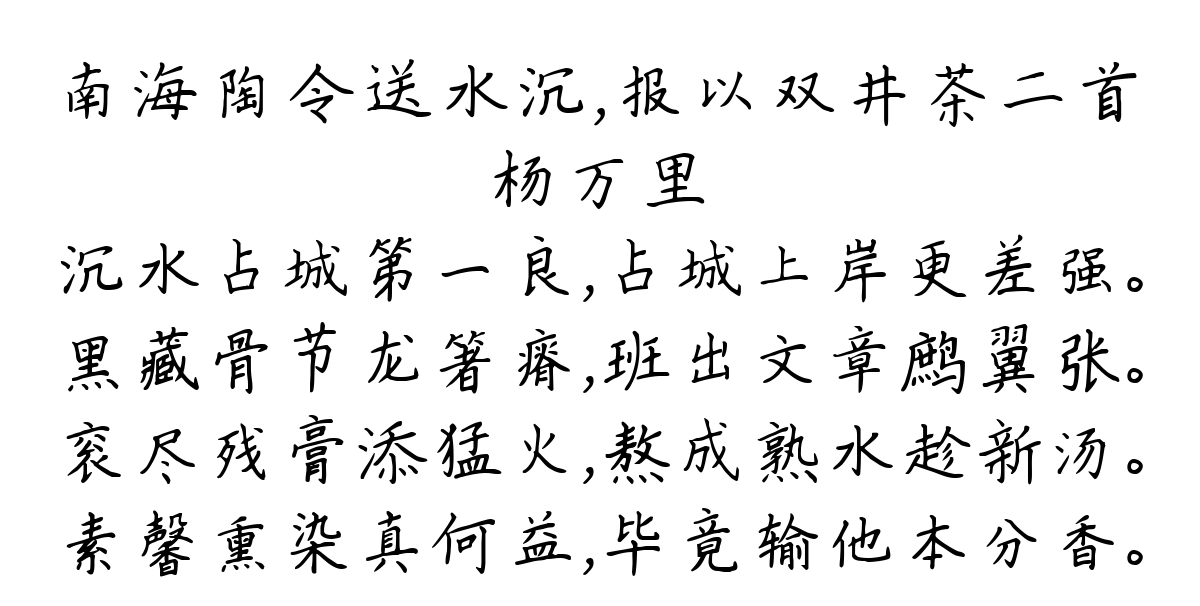 南海陶令送水沉,报以双井茶二首
杨万里
沉水占城第一良,占城上岸更差强。
黑藏骨节龙箸瘠,班出文章鹧翼张。
衮尽残膏添猛火,熬成熟水趁新汤。
素馨熏染真何益,毕竟输他本分香。